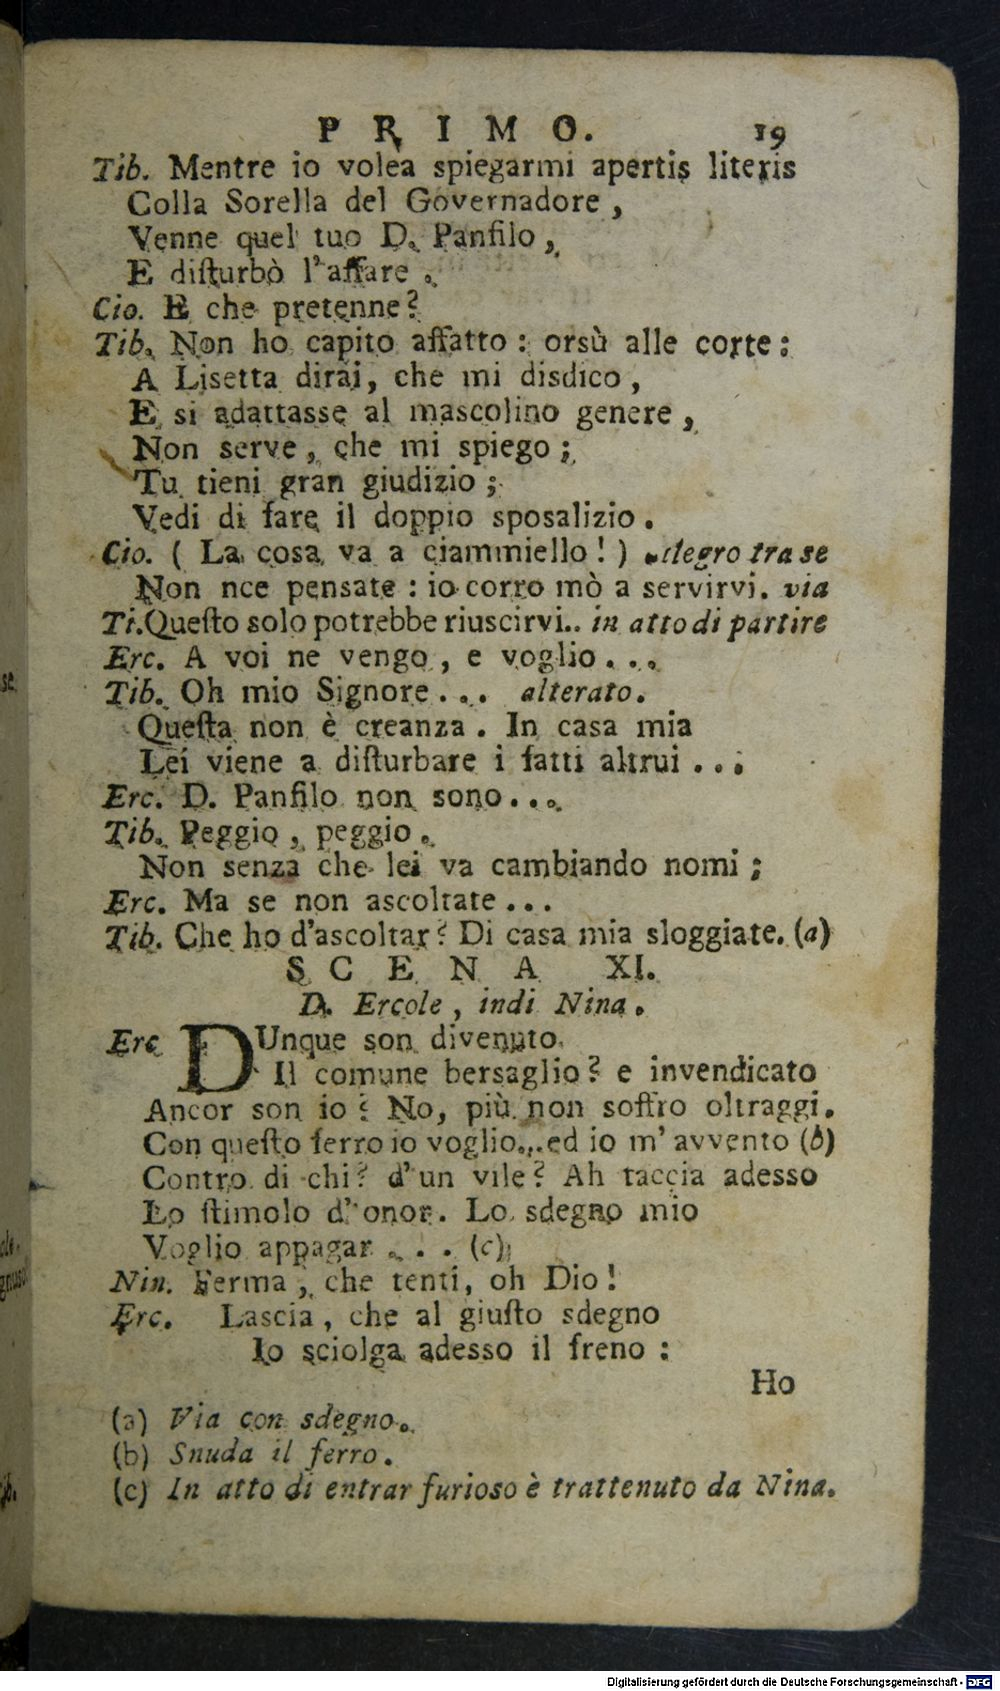 PRIMO. 19
Tib. Mentre io volea spiegarmi apertis literis
Colla Sorella del Governadore,
Venne quel tuo D. Panfilo,
E disturbò l'affare.
Cio. E che pretenne?
Tib. Non ho capito affatto: orsù alle corte:
A Lisetta dirai, che mi disdico,
E si adattasse al mascolino genere,
Non serve, che mi spiego;
Tu tieni gran giudizio;
Vedi di fare il doppio sposalizio.
Cio. (La cosa va a ciammiello!) allegro tra se
Non nce pensate: io corro mò a servirvi. via
Ti. Questo solo potrebbe riuscirvi.. in atto di partire
Erc. A voi ne vengo, e voglio...
Tib. Oh mio Signore... alterato.
Questa non è creanza. In casa mia
Lei viene a disturbare i fatti altrui...
Erc. D. Panfilo non sono...
Tib. Peggio, peggio.
Non senza che lei va cambiando nomi;
Erc. Ma se non ascoltate...
Tib. Che ho d'ascoltar? Di casa mia sloggiate. (a)
SCENA XI.
D. Ercole, indi Nina.
Erc DUnque son divenuto
Il comune bersaglio? e invendicato
Ancor son io? No, più non soffro oltraggi.
Con questo ferro io voglio...ed io m'avvento (b)
Contro di chi? d'un vile? Ah taccia adesso
Lo stimolo d'onor. Lo sdegno mio
Voglio appagar... (c)
Nin. Ferma, che tenti, oh Dio!
Erc. Lascia, che al giusto sdegno
Io sciolga adesso il freno:
Ho
(a) Via con sdegno.
(b) Snuda il ferro.
(c) In atto di entrar furioso è trattenuto da Nina.
Digitalisierung gefördert durch die Deutsche Forschungsgemeinschaft - DFG